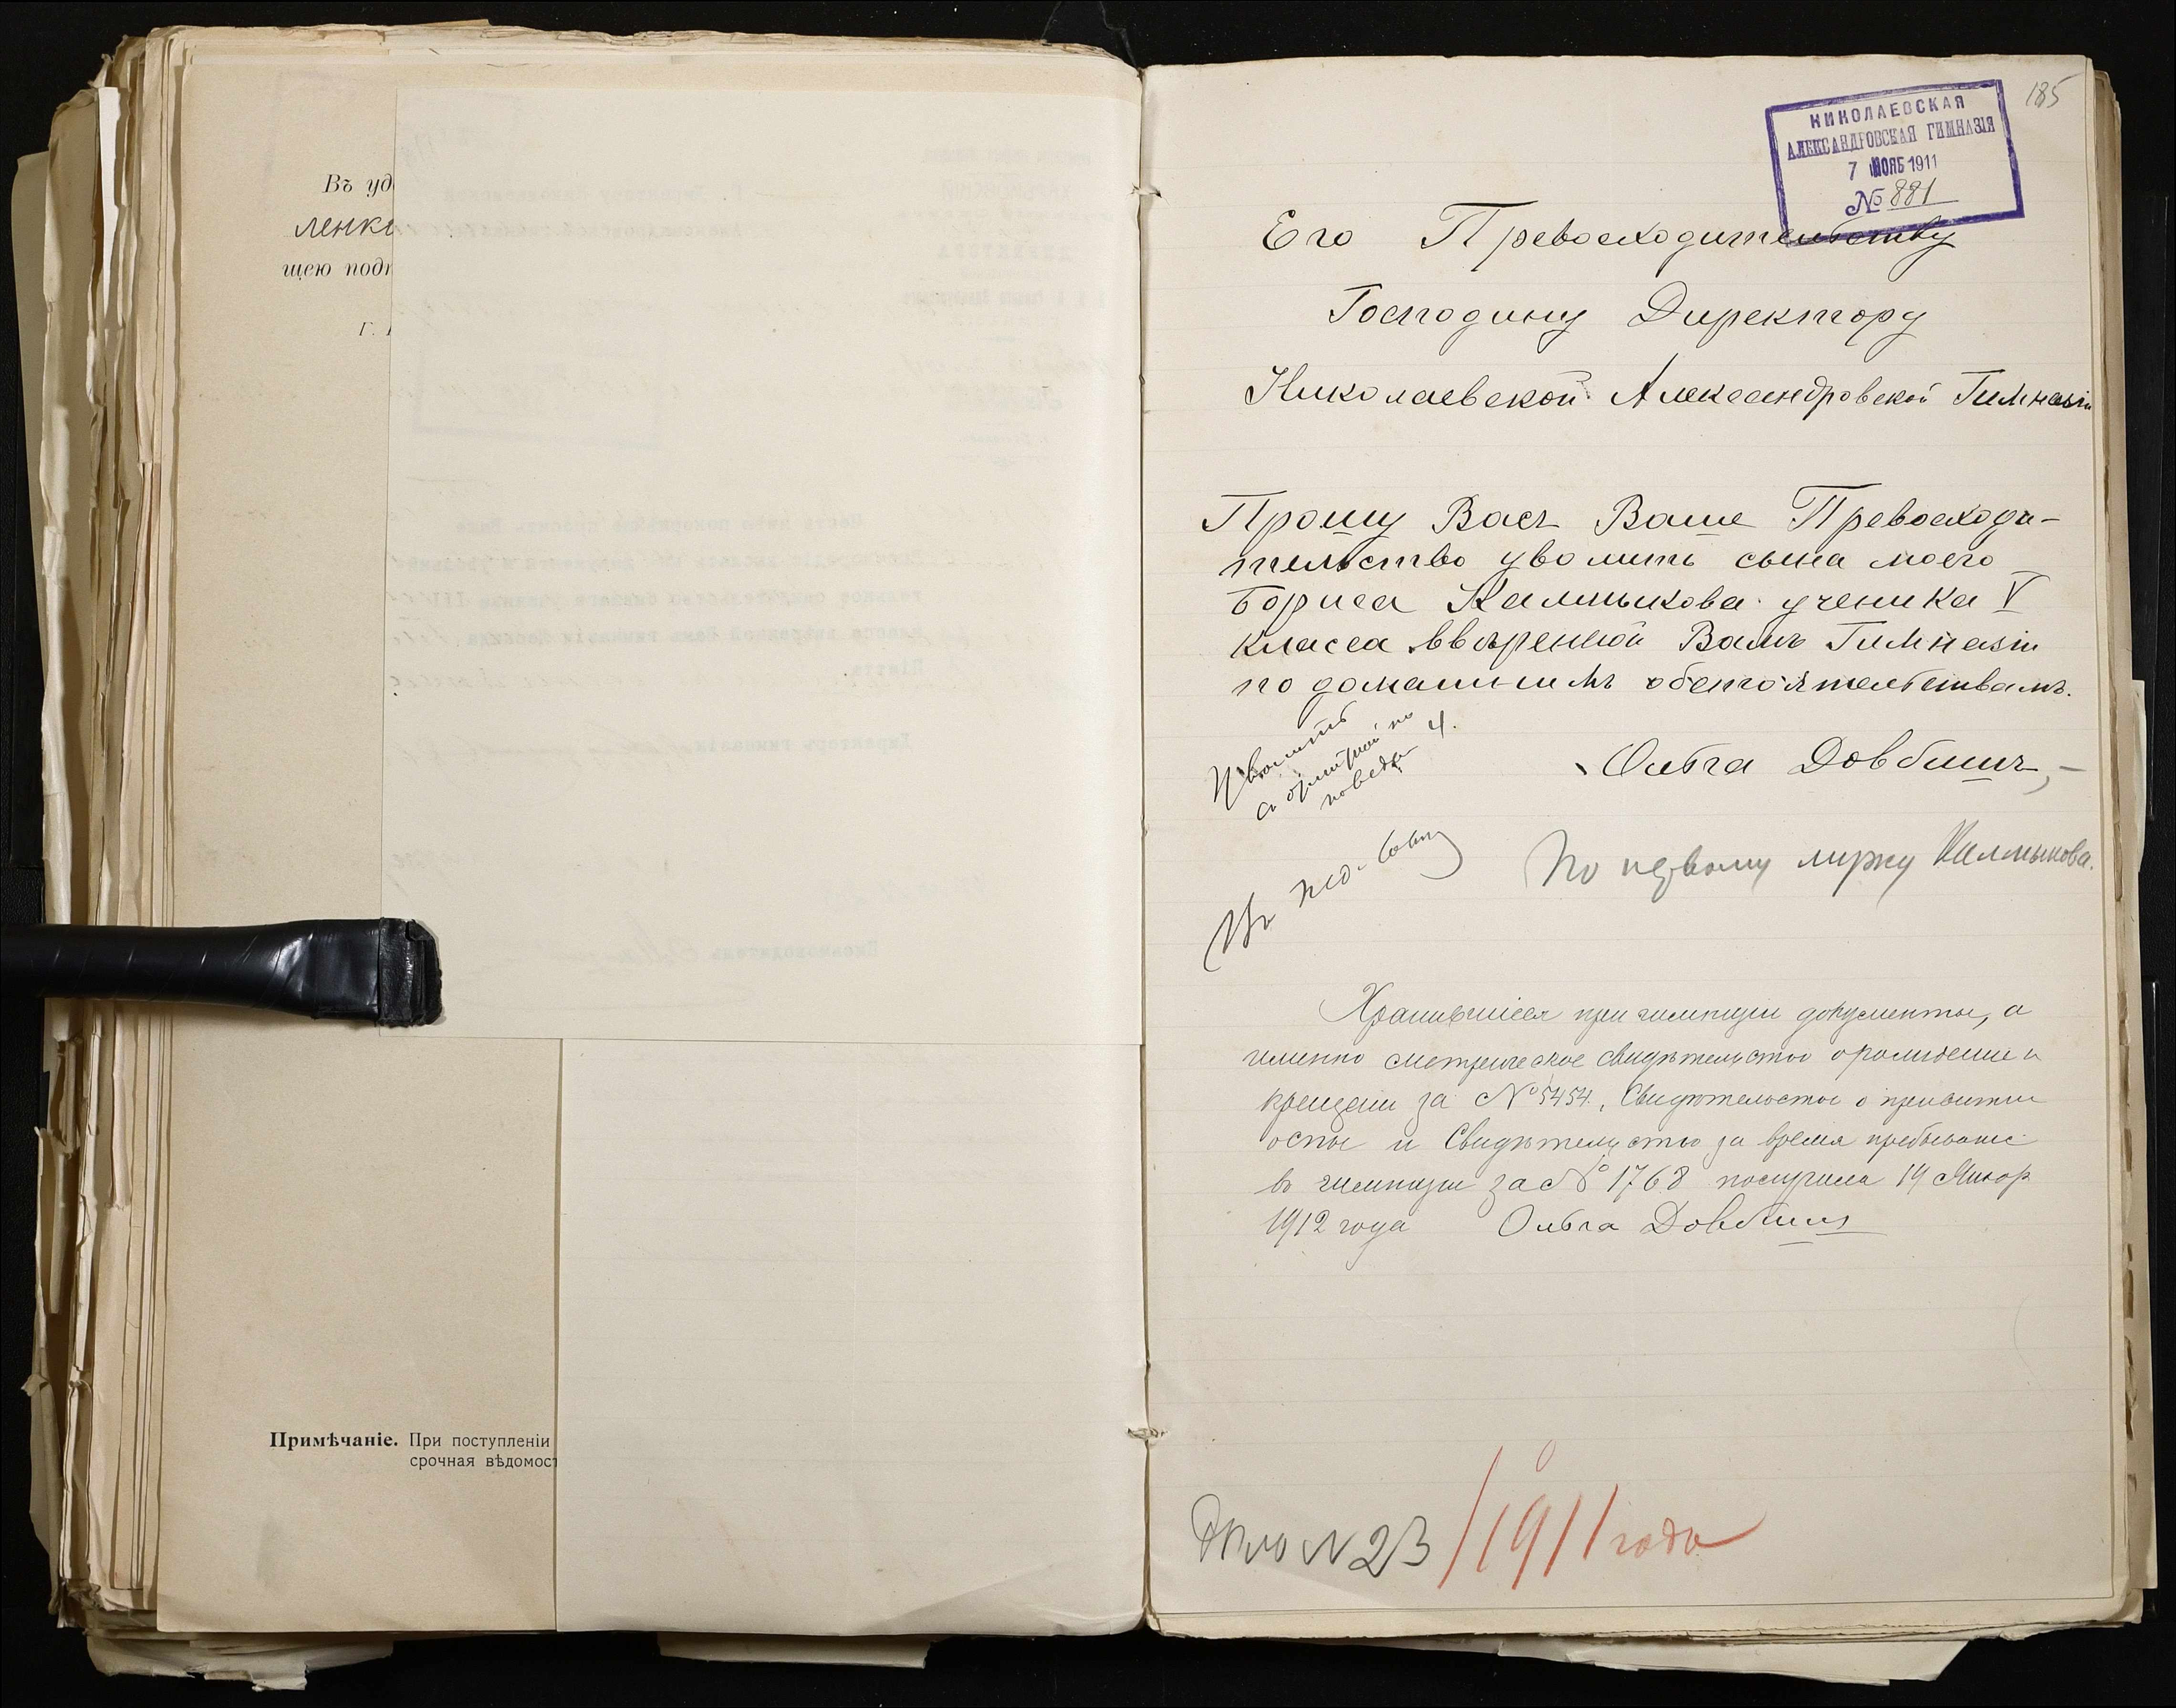 Въ уд
ленк
щею подп
Г.
Примѣчаніе. При поступленіи
срочная вѣдомост
185
НИКОЛАЕВСКАЯ
АЛЕКСАНДРОВСКАЯ ГИМНАЗІЯ
7 НОЯБ 1911
№ 881
Его Превосходительству
Господину Директору
Николаевской Александровской Гимназіи
Прошу Васъ Ваше Превосходи-
тельство уволить сына моего
Бориса Калмыкова ученика V
класса ввѣренной Вамъ Гимназіи
по домашнимъ обстоятельствамъ.
Ольга Довбишъ
Уволить
съ отмѣткой по
поведен 4.
По первому мужу Калмыкова.
Въ пед. совѣт
Хранившіеся при гимназіи документы, а
именно метрическое свидѣтельство о рожденіи и
крещеніи за № 5454, Свидѣтельство о привитіи
оспы и Свидѣтельство за время пребыванія
въ гимназіи за № 1768 получила 14 Январ
1912 года Ольга Довбишъ
Дѣло N 23/1911 года